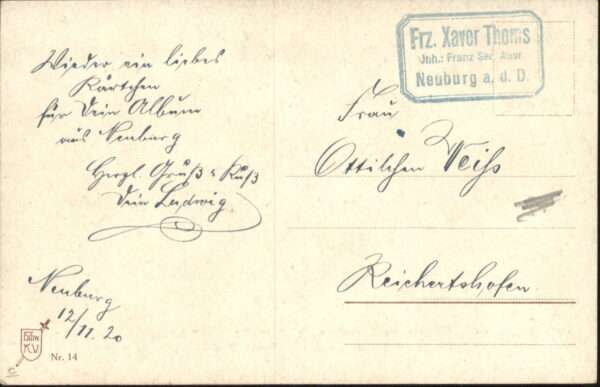 Wieder ein liebes
Kärtchen
für Dein Album
aus Neuburg
Herzl. Gruß & Kuß
Dein Ludwig
Neuburg
12/11. 20
K.V.
Nr. 14
Frz. Xaver Thoms
Jnh.: Franz
Neuburg a. d. D.
Frau
Ottilchen Weiß
Reichertshofen